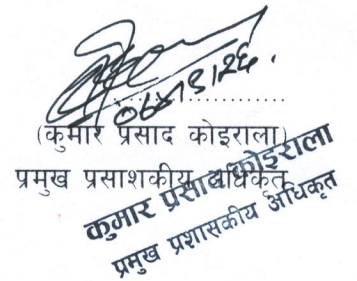 (कुमार प्रसाद कोइराला)
प्रमुख प्रसाशकीय अधिकृत
कुमार प्रसाद कोइराला
प्रमुख प्रशासकीय अधिकृत